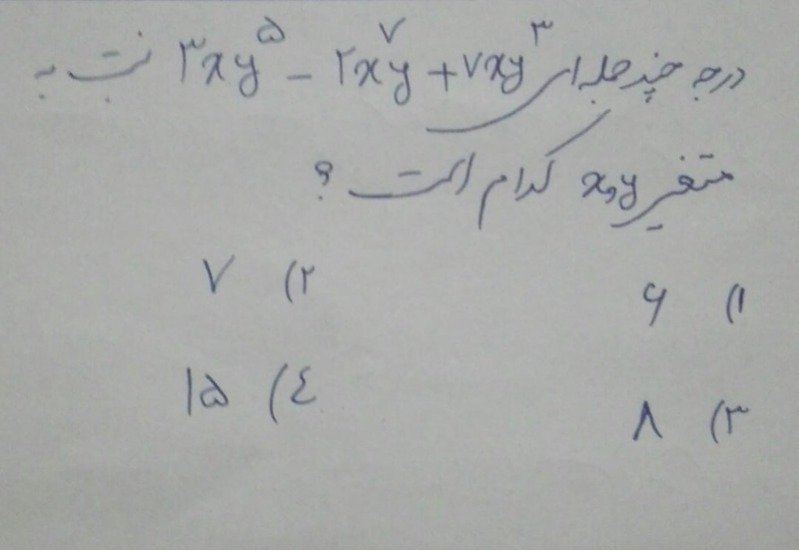 درجه چند جمله ای ۳xy^۵ - ۲x^۷y + ۷xy^۳ نسبت به
متغیر x,y کدام است ؟
۱) ۶ ۲) ۷
۳) ۸ ٤) ۱۵